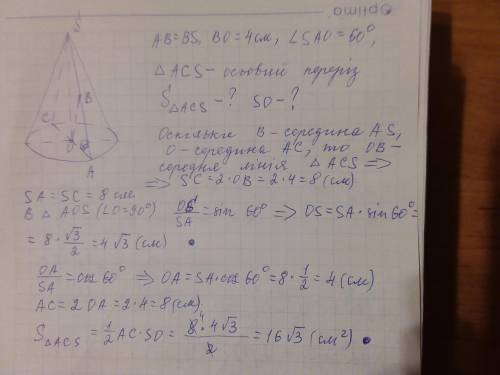 Optima
S
B
C
O
A
AB=BS, BO=4см, ∠SAO=60°,
△ACS – осьовий переріз
S△ACS – ? SO – ?
Оскільки B – середина AS,
O – середина AC, то OB –
середня лінія △ACS ⟹
⟹ SC=2·OB=2·4=8(см).
SA=SC=8 см.
В △AOS (∠O=90°) OS/SA = sin 60° ⟹ OS=SA·sin60°=
=8·√3/2=4√3(см)
OA/SA=cos 60° ⟹ OA=SA·cos60°=8·1/2=4(см)
AC=2OA=2·4=8(см).
S△ACS=1/2 AC·SO=8·4√3/2=16√3(см²)